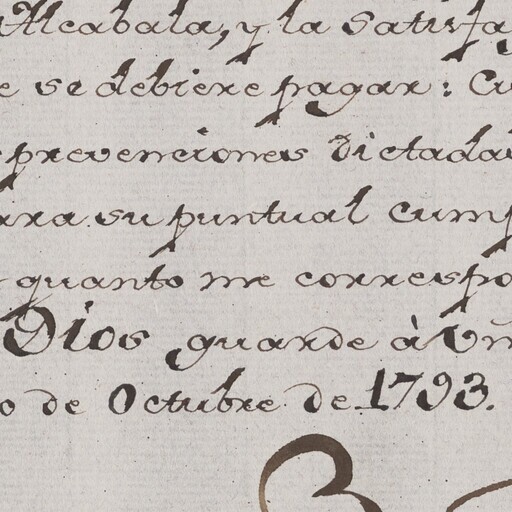 Alcabala, y la satisfa
e si debiere pagar: Cu
prevenciones dictadas
ara su puntual cump
quanto me correspo
Dios guarde à Vm
o de Octubre de 1793.